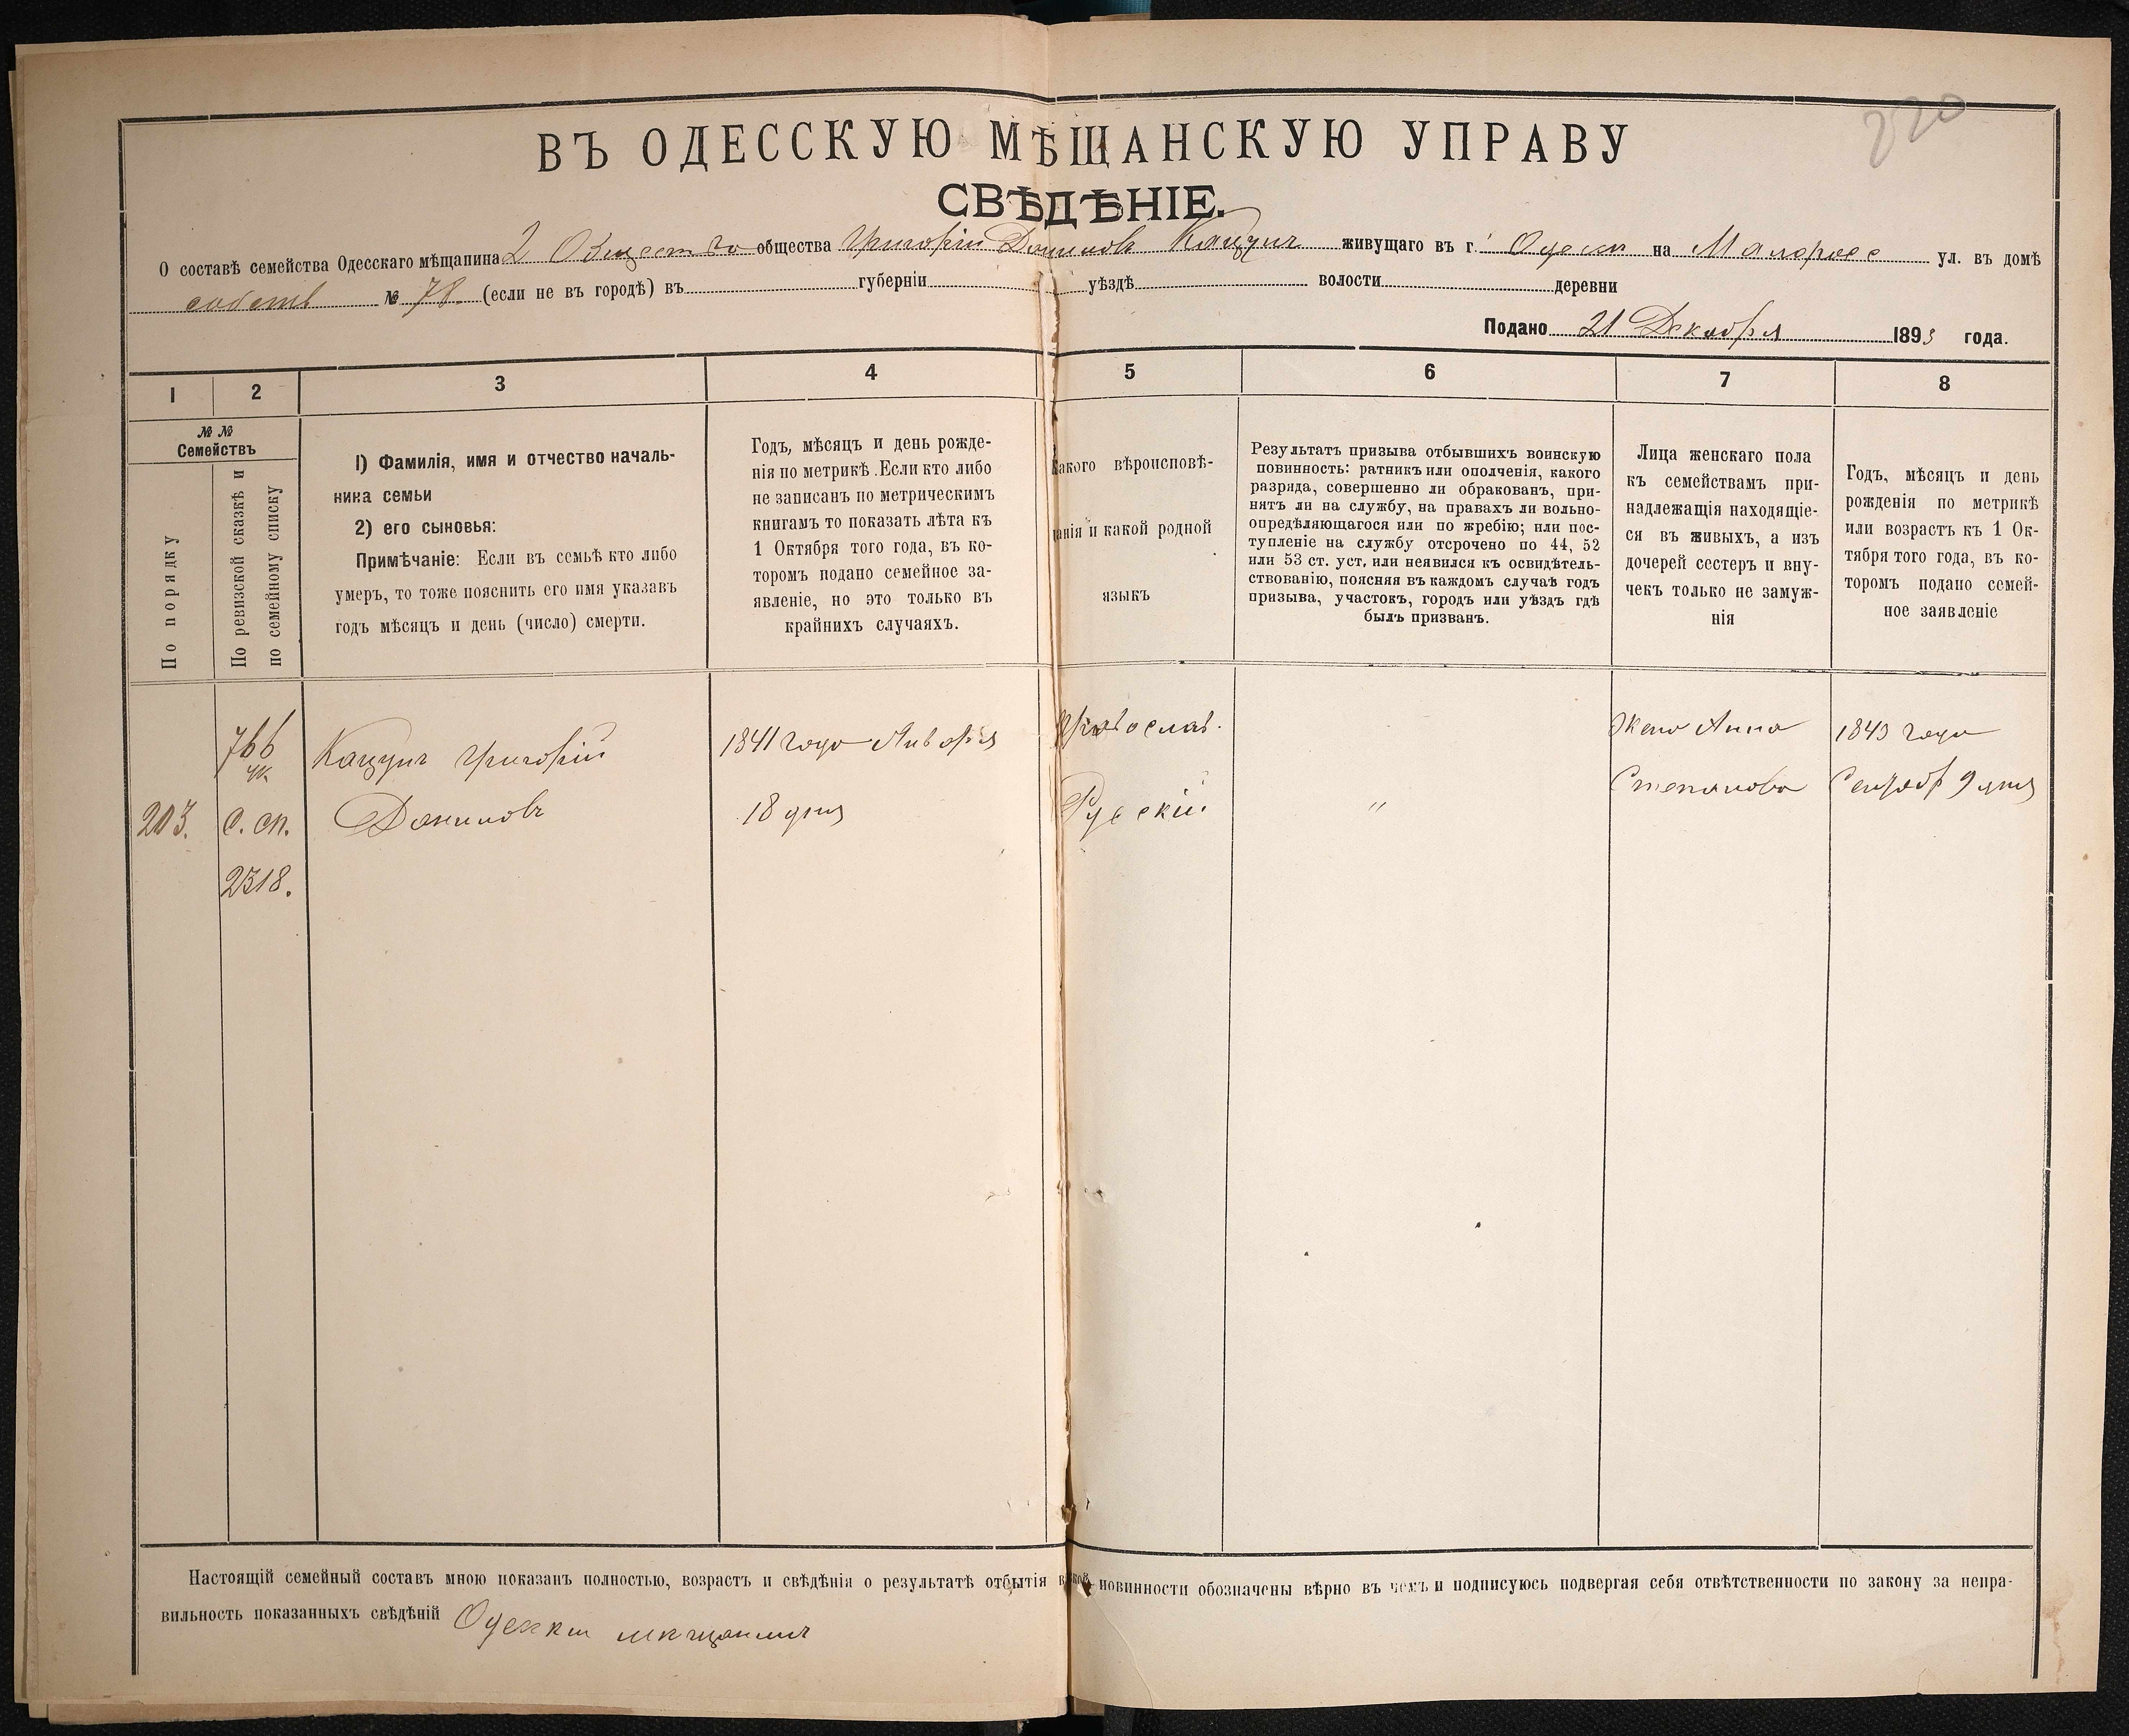 220
ВЪ ОДЕССКУЮ МѢЩАНСКУЮ УПРАВУ
СВѢДѢНІЕ.
О составѣ семейства Одесскаго мѣщанина 2 Общество общества Григорій Данилов живущаго въ г. Одесси на Малоросс ул. въ домѣ
собств № 78. (если не въ городѣ) въ губерніи уѣздѣ волости деревни
Подано 21 Декабря 1893 года.
1 2 3 4 5 6 7 8
№ № Семействъ
По порядку
По ревизской сказкѣ и
по семейному списку
1) Фамилія, имя и отчество началь-
ника семьи
2) его сыновья:
Примѣчаніе: Если въ семьѣ кто либо
умеръ, то тоже пояснить его имя указавъ
годъ мѣсяцъ и день (число) смерти.
Годъ, мѣсяцъ и день рожде-
нія по метрикѣ. Если кто либо
не записанъ по метрическимъ
книгамъ то показать лѣта къ
1 Октября того года, въ ко-
торомъ подано семейное за-
явленіе, но это только въ
крайнихъ случаяхъ.
Какого вѣроисповѣ-
данія и какой родной
языкъ
Результатъ призыва отбывшихъ воинскую
повинность: ратникъ или ополченія, какого
разряда, совершенно ли обракованъ, при-
нятъ ли на службу, на правахъ ли вольно-
опредѣляющагося или по жребію; или пос-
тупленіе на службу отсрочено по 44, 52
или 53 ст. уст. или неявился къ освидѣтель-
ствованію, поясняя въ каждомъ случаѣ годъ
призыва, участокъ, городъ или уѣздъ гдѣ
былъ призванъ.
Лица женскаго пола
къ семействамъ при-
надлежащія находящіе-
ся въ живыхъ, а изъ
дочерей сестеръ и вну-
чекъ только не замуж-
нія
Годъ, мѣсяцъ и день
рожденія по метрикѣ
или возрастъ къ 1 Ок-
тября того года, въ ко-
торомъ подано семей-
ное заявленіе
203.
766
с. сп.
2318.
Григорій
Данилов
1841 года Января
18 дня
Православ.
Русскій
"
Жена Анна
Степанова
1843 года
Сентяб 9 дня
Настоящій семейный составъ мною показанъ полностью, возрастъ и свѣдѣнія о результатѣ отбытія повинности обозначены вѣрно въ чемъ и подписуюсь подвергая себя отвѣтственности по закону за непра-
вильность показанныхъ свѣдѣній